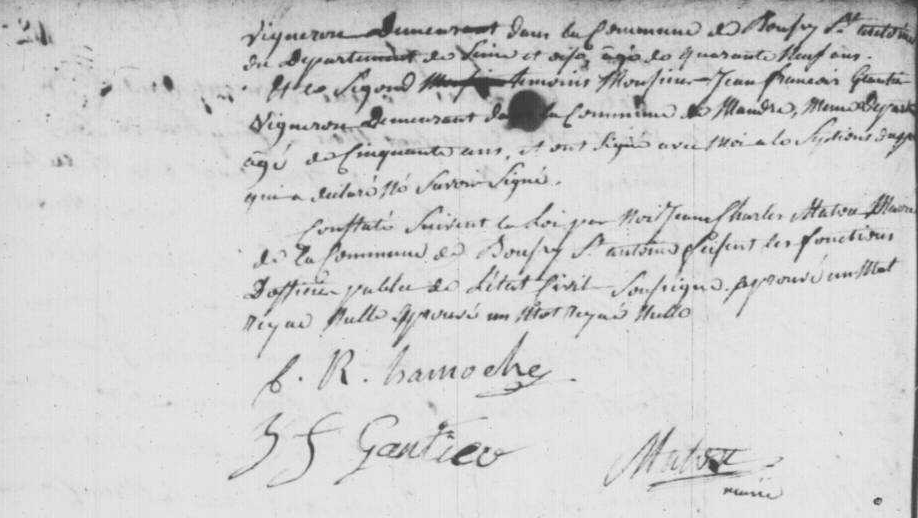 Vigneron Demeurant dans la Commune de Boussy St antoine
du Departement de Seine et oise, âgé de quarante Neuf ans.
Et le Segond temoins Monsieur Jean francois Gautier
Vigneron Demeurant dans la Commune de Mandre, meme Depar
âgé de Cinquante ans, et ont Signé avec Moi a
qui a declaré Né Savoir Signé.
Constaté Suivent la Loi par Moi Jean Charles Maire
de la Commune de Boussy St antoine fesent les fonctions
D'officier public de L'état Civil Soussigné approuvé un Mot
reyné Nulle approuvé un Mot reyné Nulle
R. hamoche
J f Gautier
maire